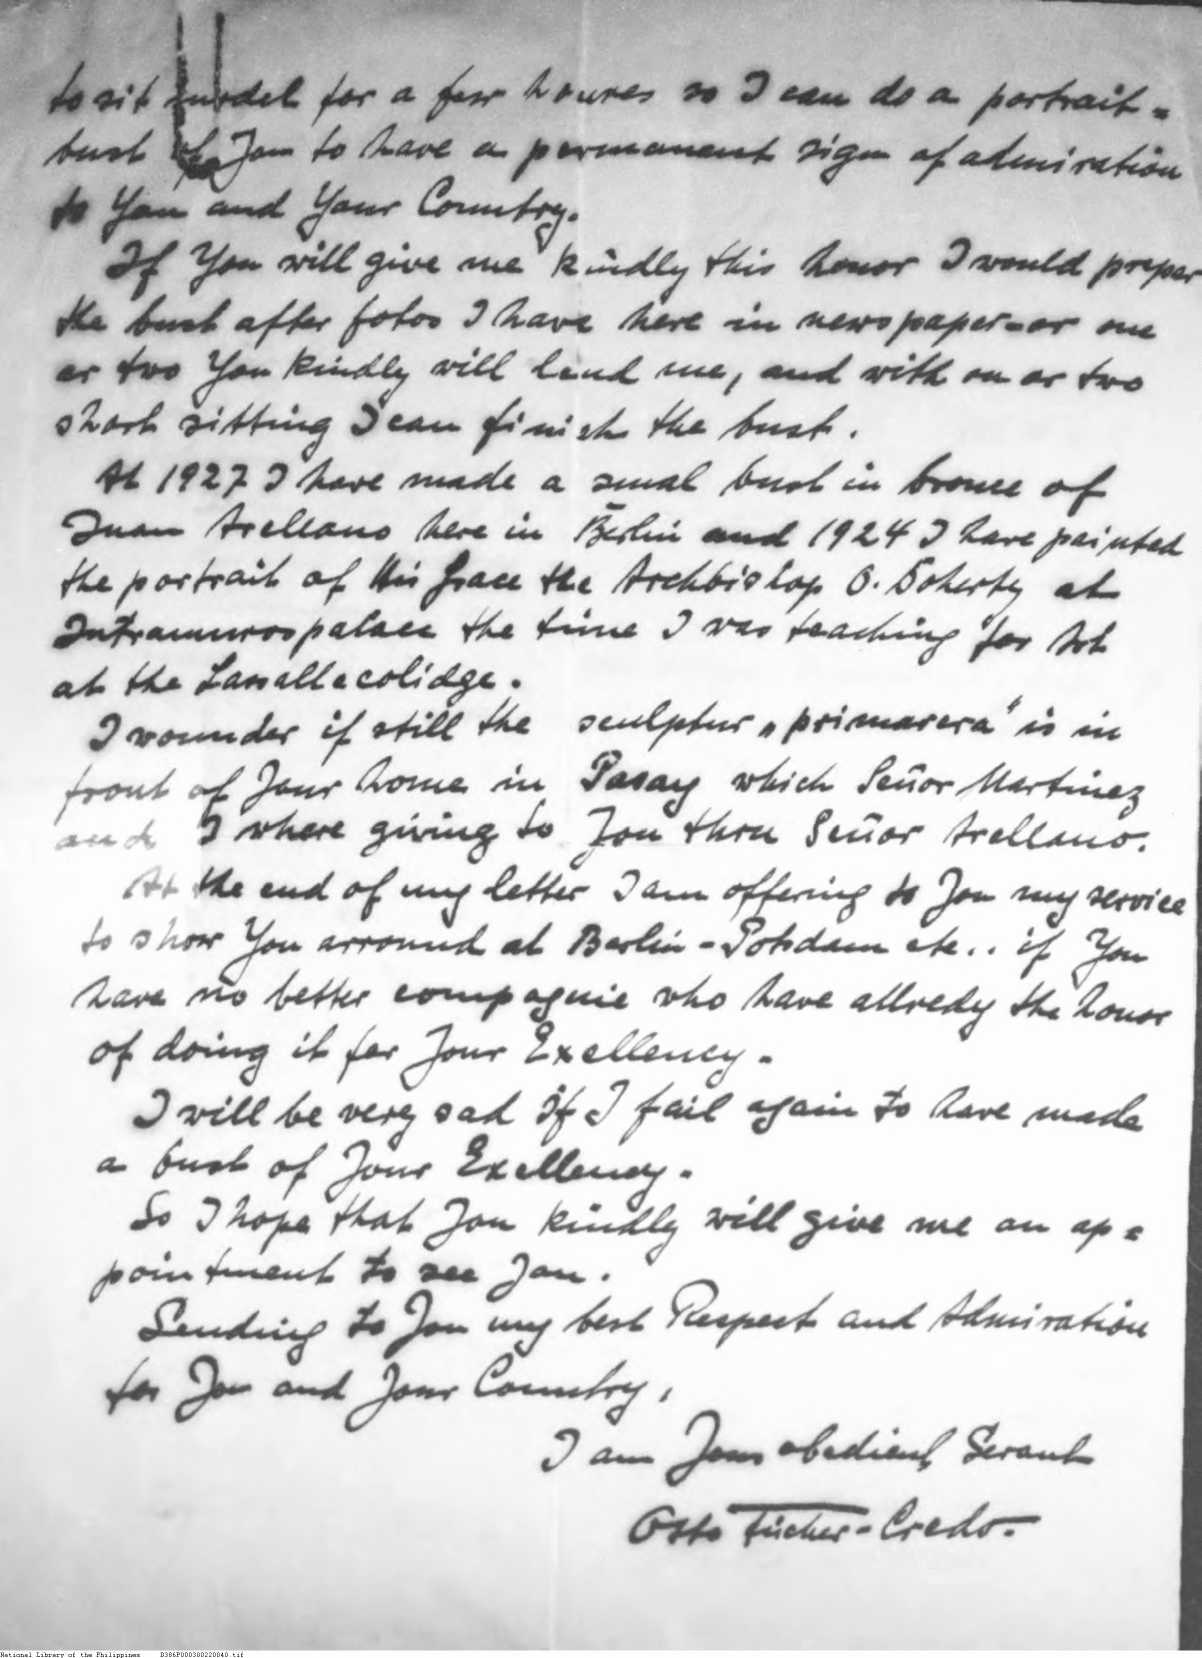 to sit model for a few houres so I can do a portrait=
bust of You to have a permanent sign of admiration
to You and Your Country.
If You will give me kindly this honor I would preper
the bust after fotos I have here in newspaper-or one
or two You kindly will lend me, and with on or two
short sitting I can finish the bust.
At 1927 I have made a small bust in bronce of
Juan Arellano here in Berlin and 1924 I have painted
the portrait of His Grace the Archbishop O. Doherty at
Intramurospalace the time I was teaching for Art
at the Lassallecolidge.
I wounder if still the sculptur „primavera" is in
front of Your home in Pasay which Señor Martinez
and I where giving to You thru Señor Arellano.
At the end of my letter I am offering to You my service
to show You arround at Berlin-Potsdam etc.. if You
have no better compagnie who have allredy the honor
of doing it for Your Exellency.
I will be very sad if I fail again to have made
a bust of Your Exellency.
So I hope that You kindly will give me an ap=
pointment to see You.
Sending to You my best Respect and Admiration
for You and Your Country,
I am Your obedient Servant
Otto Fischer-Credo.
National Library of the Philippines B386P000380220040.tif